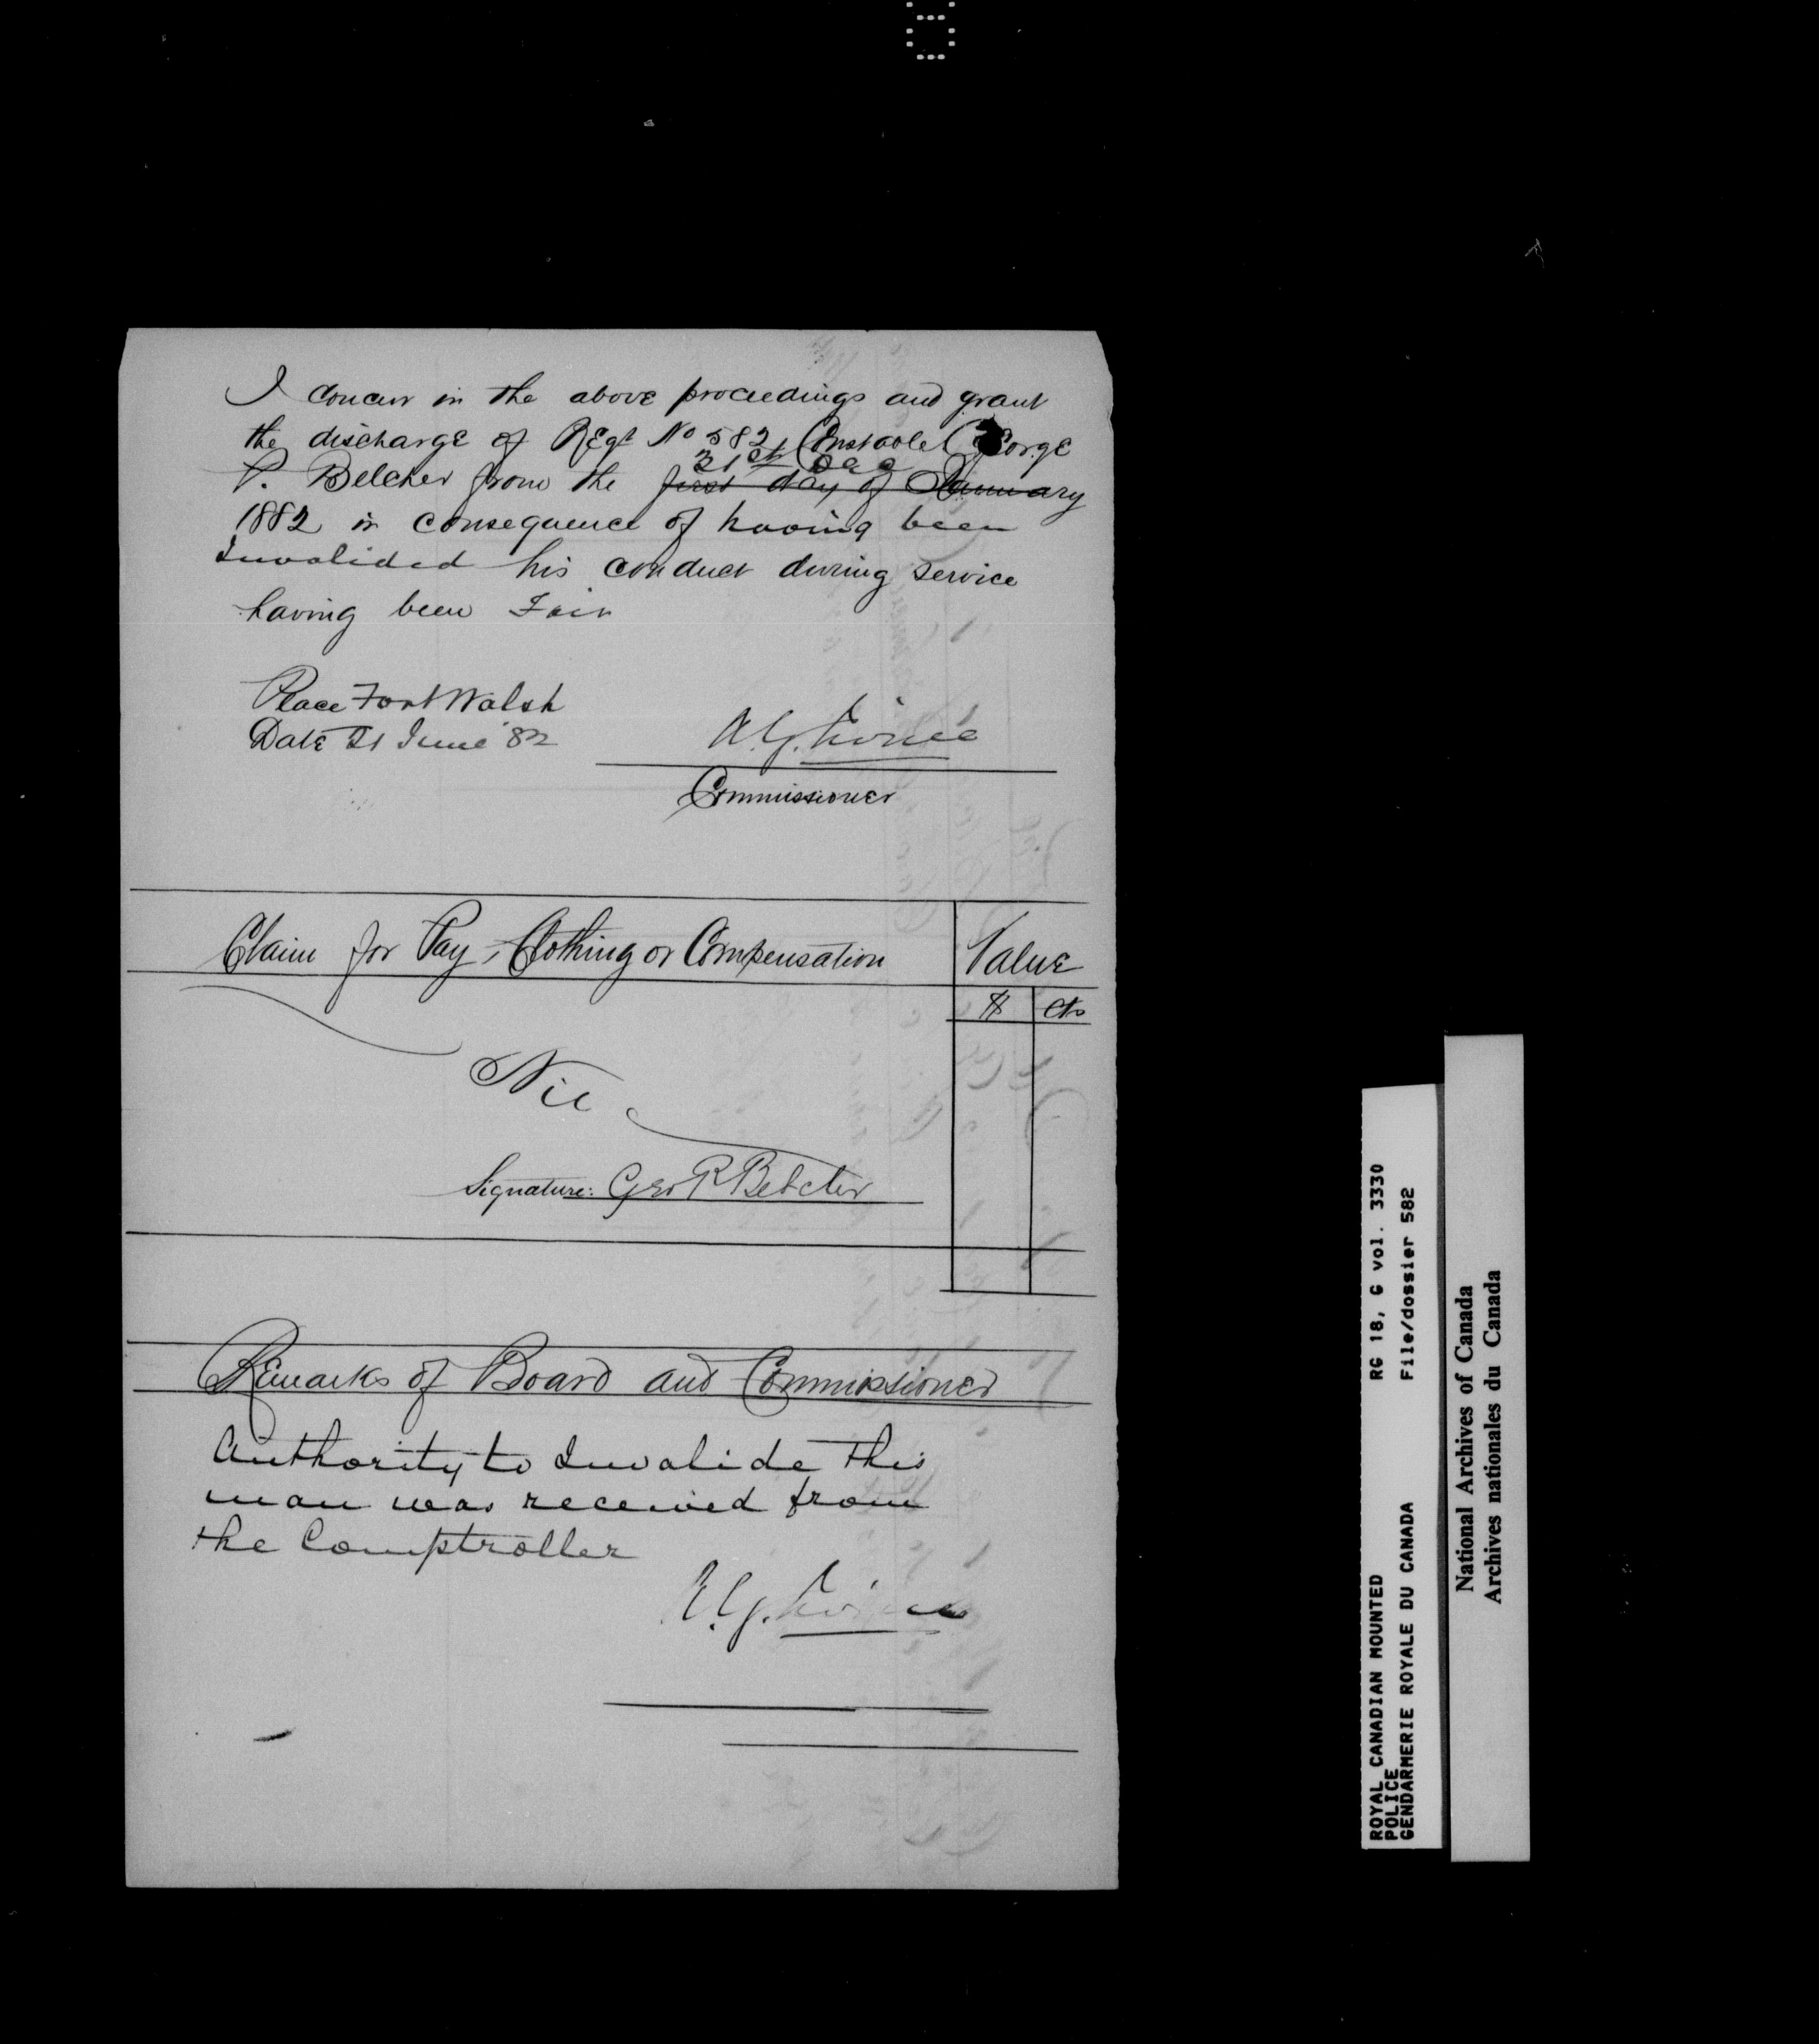 I concur in the above proceedings and grant
the discharge of Regt No 582 Constable George
31st Dec
P. Belcher from the first day of January
1882 in consequence of having been
Invalided his conduct during service
having been Fair
Place Fort Walsh
Date 21 June '82
A.G. Irvine
Commissioner
Claim for Pay, Clothing or Compensation
Value
$ cts
Nil
Signature: Geo P Belcher
Remarks of Board and Commissioner
Authority to Invalide this
man was received from
the Comptroller
A.G. Irvine
ROYAL CANADIAN MOUNTED RG 18, G vol. 3330
POLICE
GENDARMERIE ROYALE DU CANADA File/dossier 582
National Archives of Canada
Archives nationales du Canada